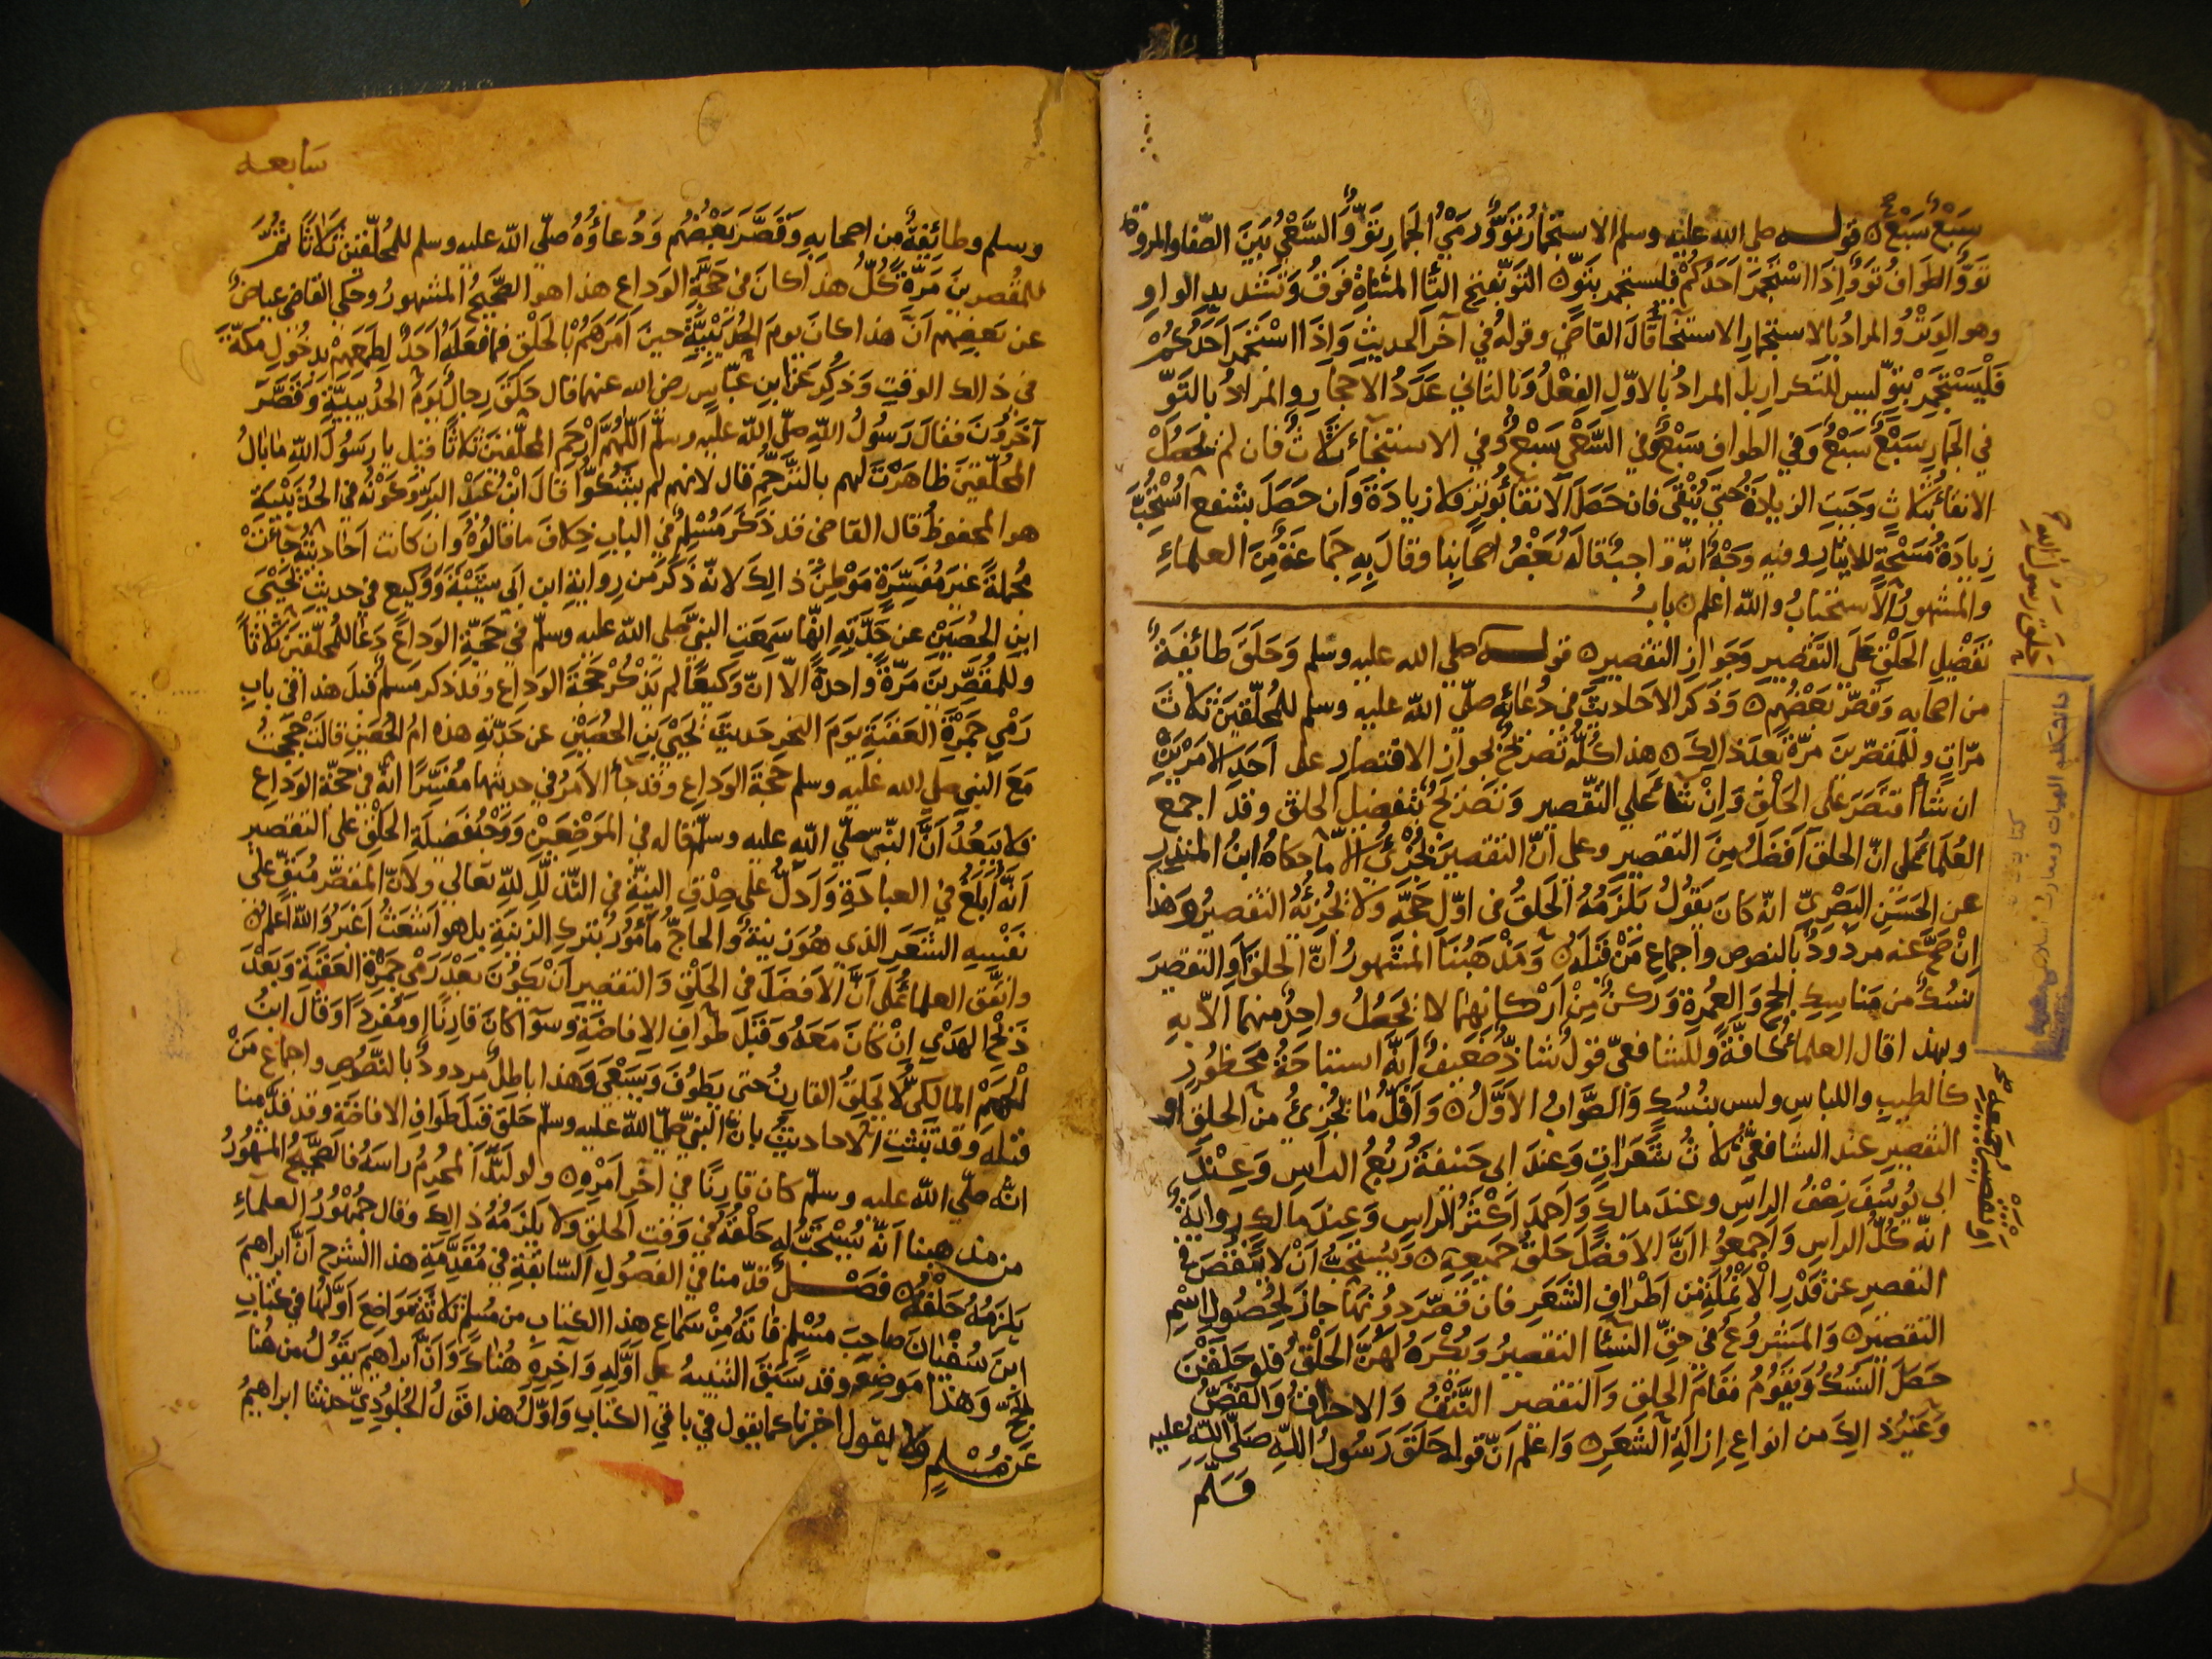 سَبْعٌ سَبْعٌ قوله صلى الله عليه وسلم الاستجمار تَوٌّ ورَمْيُ الجمارِ تَوٌّ والسَّعْيُ بَيْنَ الصَّفا والمروة
تَوٌّ والطوافُ تَوٌّ وَاِذَا اسْتَجمَرَ اَحَدُكُمْ فليستجمر بتَوٍّ التَوّ بفتح التاء المثناةِ فوقُ وتشديدِ الواوِ
وهو الوِتْرُ والمرادُ بالاستجمارِ الاستنجاءُ قَالَ القاضي وقوله في آخر الحديث وَاِذَا اسْتَجْمَرَ اَحَدُكُمْ
فَلْيَسْتَجْمِرْ بِتَوٍّ ليس للتكرارِ بل المرادُ بالاوّلِ الفِعْلُ وَبالثاني عَدَدُ الاحجارِ والمرادُ بالتَّوِّ
في الجمارِ سَبْعٌ سَبْعٌ وفي الطوافِ سَبْعٌ وفي السَّعْيِ سَبْعٌ وفي الاستنجاءِ ثَلاثٌ فان لم يَحصُلْ
الانقاءُ بثلاثٍ وَجَبَتِ الزيادَةُ حتى يُنْقِىَ فان حَصَلَ الانقاءُ بوِترٍ فلا زيادَةَ وَاِن حَصَلَ بشفعٍ اُسْتُحِبَّ
زيادَةُ مَسْحَةٍ للايتارِ وفيه وَجْهٌ انّه واجبٌ قاله بَعْضُ اصحابِنا وقالَ بِهِ جَمَاعَةٌ مِنَ العلماءِ
والمشهورُ الاستحبابُ والله اعلم باب
تفضيلِ الحَلْقِ عَلَى التَّقْصِيرِ وَجَوازِ التقصيرِ قوله صلى الله عليه وسلم وَحَلَقَ طائِفَةٌ
من اصحابه وَقَصَّرَ بَعْضُهم وَذكر الاحاديثَ في دُعَائِهِ صلّى الله عليه وسلم للمُحَلِّقِينَ ثلاثَ
مرّاتٍ وللمُقَصِّرِينَ مَرّةً بعدَ ذالكَ هذا كُلُّه تصريحٌ بجوازِ الاقتصارِ على اَحَدِ الامرَيْنِ
ان شاءَ اقتَصَرَ عَلى الحَلْقِ وَاِنْ شاءَ على التَّقْصيرِ وَتَصْريحٌ بتفضيلِ الحلق وقد اجمع
العُلَماءُ على انّ الحلقَ اَفضَلُ مِنَ التقصيرِ وعلى اَنّ التقصيرَ يُجْزِئُ اِلّا ما حكاهُ ابنُ المنذِرِ
عنِ الحَسَنِ البَصْرِيّ انّه كانَ يَقُولُ يَلْزَمُهُ الحلقُ في اوّلِ حَجّةٍ وَلا يُجْزِئُهُ التقصيرُ وهذا
اِنْ صَحَّ عنه مردودٌ بالنصوصِ واجماعِ مَنْ قَبْلَهُ وَمَذْهَبُنا المَشْهورُ اَنّ الحلقَ اَوِ التقصيرَ
نسُكٌ من مناسِكِ الحجِّ وَالعُمرةِ وَركنٌ مِنْ اَرْكانِهِما لا يَحصُلُ واحِدٌ منهما الّا بِهِ
وبهذا قالَ العلماءُ كافّةً وَللشافعيِّ قولٌ شاذٌّ ضعيفٌ اَنّه استباحَةُ محظورٍ
كالطيبِ واللباسِ وليس بنُسُكٍ وَالصّوابُ الاَوَّلُ وَاَقَلُّ ما يُجْزِئُ من الحلقِ اَوِ
التقصيرِ عندَ الشافعيِّ ثلاثُ شَعَراتٍ وَعندَ ابي حَنيفةَ رُبُعُ الراسِ وَعِنْدَ
ابى يُوسُفَ نِصْفُ الراسِ وعندَ مالكٍ وَاَحمدَ اَكْثَرُ الراسِ وَعندَ مالكٍ روايَةٌ
انّه كلُّ الراسِ وَاَجمعُوا اَنَّ الافضَلَ حلقُ جَميعِهِ وَيُسْتَحَبُّ اَنْ لا يَنْقُصَ في
التقصيرِ عن قَدْرِ الاَنْمُلَةِ من اَطْرافِ الشَّعَرِ فان قَصَّرَ دُونَها جازَ لحُصُولِ اسْمِ
التقصيرِ وَالمشروعُ في حقِّ النساءِ التقصيرُ وَيُكْرَهُ لَهُنَّ الحَلْقُ فلو حَلَقْنَ
حَصَلَ النُّسُكُ وَيَقُومُ مقامَ الحلقِ وَالتقصيرِ النَّتْفُ وَالاحراقُ وَالقصُّ
وَغَيْرُ ذالِكَ من انواعِ اِزالَةِ الشَّعَرِ وَاعْلَمْ اَنّ قوله حَلَقَ رَسُولُ اللهِ صَلَّى اللهُ عليه
وَسَلّم
سَابعه
وسلم وطائِفَةٌ من اصحابِهِ وَقَصَّرَ بَعْضُهُم وَدُعاؤُهُ صلّى الله عليه وسلم للمُحَلِّقِينَ ثَلاثًا ثُمَّ
للمُقَصِّرِينَ مَرّةً كُلُّ هذا كانَ في حَجَّةِ الوَداعِ هذا هو الصَّحِيحُ المشهورُ وحكى القاضي عياضٌ
عن بَعْضِهِم اَنَّ هذا كانَ يومَ الحُدَيْبِيَةِ حينَ اَمَرَهُمْ بالحَلْقِ فما فَعَلَهُ اَحَدٌ لِطَمَعِهِمْ بدُخُولِ مكّةَ
في ذالك الوقتِ وَذُكِرَ عَنِ ابنِ عَبّاسٍ رضى الله عنهما قال حَلَقَ رِجالٌ يَومَ الحُدَيبِيَّةِ وَقَصَّرَ
آخَرُونَ فقالَ رَسُولُ اللهِ صلّى الله عليه وسلّم اَللّهُمَّ ارْحَمِ المُحَلِّقِينَ ثلاثًا قيل يا رسُولَ اللهِ ما بالُ
المُحَلِّقينَ ظاهَرْتَ لهم بالتّرحُّمِ قال لانهم لم يَشُكُّوا قالَ ابْنُ عَبْدِ البَرِّ وَكونُهُ في الحُدَيْبِيَةِ
هو المحفوظُ قال القاضي قد ذَكَرَ مُسْلِمٌ في البابِ خِلافَ ما قالُوهُ وَاِن كانت اَحاديثُهُ جاءَتْ
مُجملةً غيرَ مُفَسَّرَةٍ مَوْطِنَ ذالكَ لانّه ذَكَرَ من روايةِ ابنِ اَبي شَيْبَةَ وَوكيعٍ في حديثِ يَحْيَى
ابنِ الحُصَيْنِ عن جَدَّتِهِ اَنّها سَمِعَتِ النبىَّ صلى الله عليه وسلّم في حَجّةِ الوَداعِ دَعا للمُحَلِّقينَ ثلاثًا
وللمُقَصِّرينَ مَرّةً واحدةً الّا اَنّ وَكيعًا لم يَذْكُرْ حَجّةَ الوَداعِ وقد ذكر مسلمٌ قبلَ هذا في بابِ
رَمْيِ جَمْرَةِ العَقَبَةِ يَومَ النحرِ حديثَ يَحْيَى بنِ الحُصَيْنِ عن جَدَّتِهِ هذه امّ الحُصَيْنِ قالت حَجَجْتُ
مَعَ النبي صلى الله عليه وسلم حجّةَ الوَداعِ وَقد جاءَ الاَمرُ في حديثِها مُفَسَّرًا اَنّه في حَجّة الوداع
فلا يَبعُدُ اَنَّ النّبىّ صلّى الله عليه وسلّم قاله في المَوْضِعَيْنِ وَوَجْهُ فَضِيلَةِ الحَلْقِ على التقصيرِ
اَنّه اَبلَغُ في العبادَةِ وَاَدَلُّ على صِدْقِ النِيّةِ في التذلّلِ للهِ تعالى ولاَنّ المقَصِّرَ مُبْقٍ على
نَفْسِهِ الشَّعَرَ الذى هُوَ زينةٌ وَالحاجُّ مأمُورٌ بتركِ الزينةِ بل هو اَشعَثُ اَغبَرُ وَالله اعلم
واتّفق العلماءُ على اَنَّ الاَفضَلَ في الحَلْقِ وَالتقصيرِ اَنْ يَكُونَ بَعْدَ رَمْيِ جَمرَةِ العَقَبَةِ وَبَعْدَ
ذَبْحِ الهَدْيِ اِنْ كانَ مَعَهُ وَقَبْلَ طوافِ الاِفاضَةِ وَسوآءٌ كانَ قارِنًا او مُفْرِدًا وَقال ابنُ
الجَهْمِ المالكىُّ لا يَحلِقُ القارِنُ حتى يَطوفَ وَيَسْعَى وَهذا باطِلٌ مردودٌ بالنُّصُوصِ واجماعِ مَنْ
قبله وَقد ثبَتَتِ الاحاديثُ بانّ النبىَّ صلّى الله عليه وسلّم حَلَقَ قبلَ طَوافِ الافاضَةِ وقد قدّمنا
انّه صلّى الله عليه وسلّم كان قارِنًا في آخرِ اَمْرِهِ ولو لَبَّدَ المُحرِمُ راسَهُ فالصّحيحُ المَشْهُورُ
من مذهبِنا اَنّه يُسْتَحَبُّ له حَلْقُهُ في وَقتِ الحلقِ وَلا يَلْزَمُهُ ذالك وَقال جُمْهُورُ العلماءِ
يَلزَمُهُ حَلْقُهُ فصل قدّمنا في الفُصُولِ السّابقةِ في مُقَدِّمَةِ هذا الشرحِ اَنّ ابراهيمَ
ابنَ سُفْيانَ صاحِبَ مُسْلِمٍ فاتَهُ مِنْ سَماعِ هذا الكتابِ من مُسْلِمٍ ثلاثَةُ مَواضِعَ اَوّلُها في كتابِ
الحجِّ وَهذا مَوضِعُه وقد سَبَقَ التنبيهُ على اَوّلِهِ وَآخِرِهِ هُناكَ وَاَنّ ابراهيمَ يَقُولُ من هُنا
عَن مُسْلِمٍ ولا يقول اخبرنا كما يقول في باقي الكتابِ وَاوّلُ هذا قَولُ الجُلُودِيِّ حدثنا ابراهيمُ